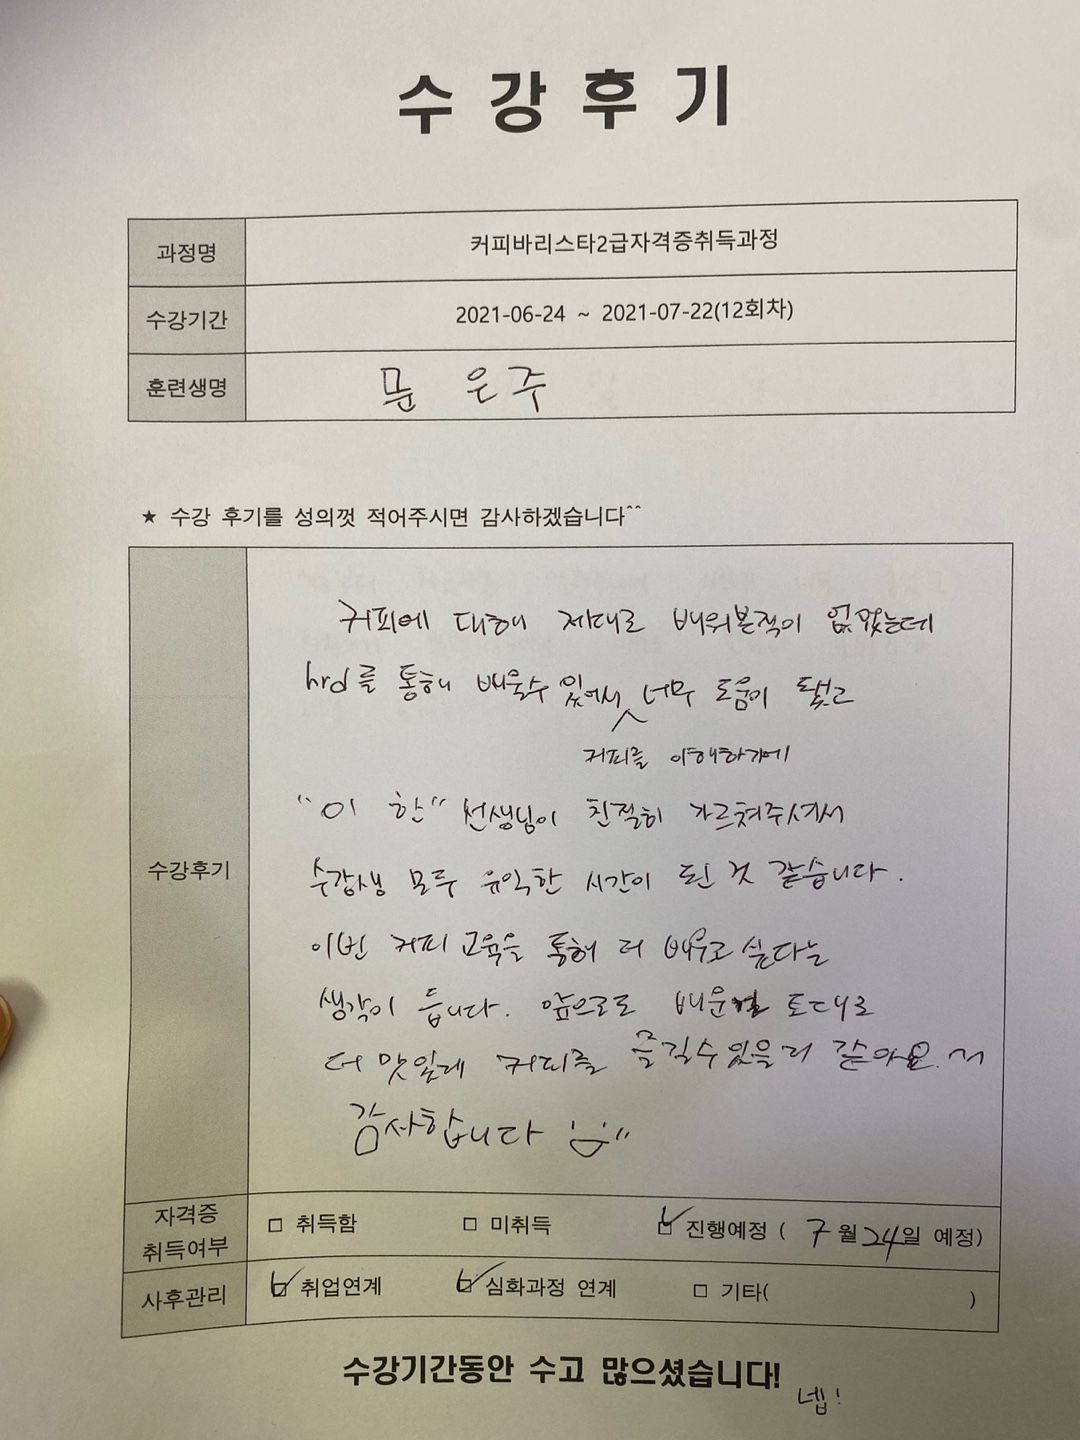 수 강 후 기
과정명 커피바리스타2급자격증취득과정
수강기간 2021-06-24 ~ 2021-07-22(12회차)
훈련생명 문 은주
★ 수강 후기를 성의껏 적어주시면 감사하겠습니다^^
수강후기
커피에 대해 제대로 배워본적이 없었는데
hrd를 통해 배울수 있어서 너무 도움이 됐고
커피를 이해하기에
"이 한" 선생님이 친절히 가르쳐주셔서
수강생 모두 유익한 시간이 된 것 같습니다.
이번 커피 교육을 통해 더 배우고 싶다는
생각이 듭니다. 앞으로도 배운걸 토대로
더 맛잇게 커피를 즐길수있을거 같아요.
감사합니다
자격증 취득여부 □ 취득함 □ 미취득 ☑ 진행예정 ( 7월24일 예정)
사후관리 ☑ 취업연계 ☑ 심화과정 연계 □ 기타( )
수강기간동안 수고 많으셨습니다!
넵!